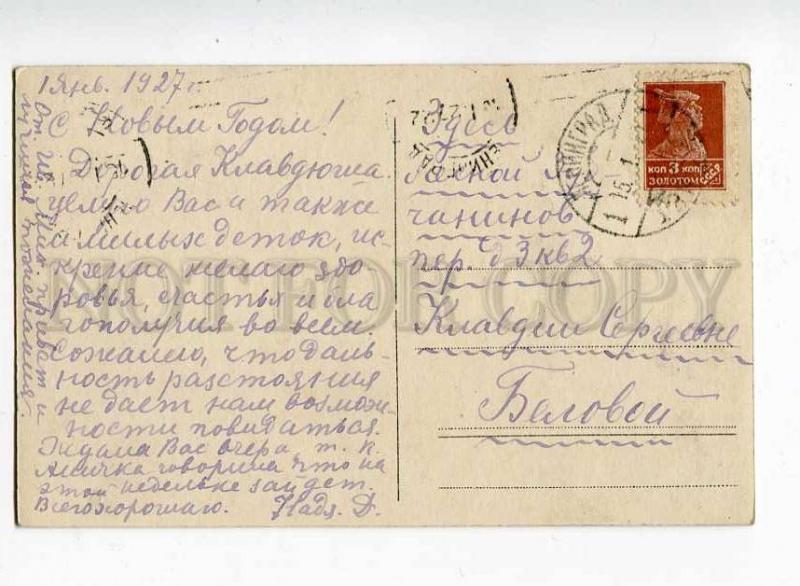 1 янв. 1927 г.
С Новым Годом!
Дорогая Клавдюша
целую Вас и также
и милых деток, ис-
кренне желаю здо
ровья, счастья и бла
гополучия во всем.
Сожалею, что даль-
ность разстояния
не дает нам возмож-
ности повидаться.
Ждала Вас вчера, т. к.
Аничка говорила, что на
этой недельке зайдет.
Всего хорошаго. Надя. Д.
От привет и
лучшия пожелания.
Здесь
чанинов
пер. д 3 кв 2
Клавдии Сергеевне
Беловой
ЛЕНИНГРАД
КОП 3 КОП
ЗОЛОТОМ
СССР
NOT FOR COPY